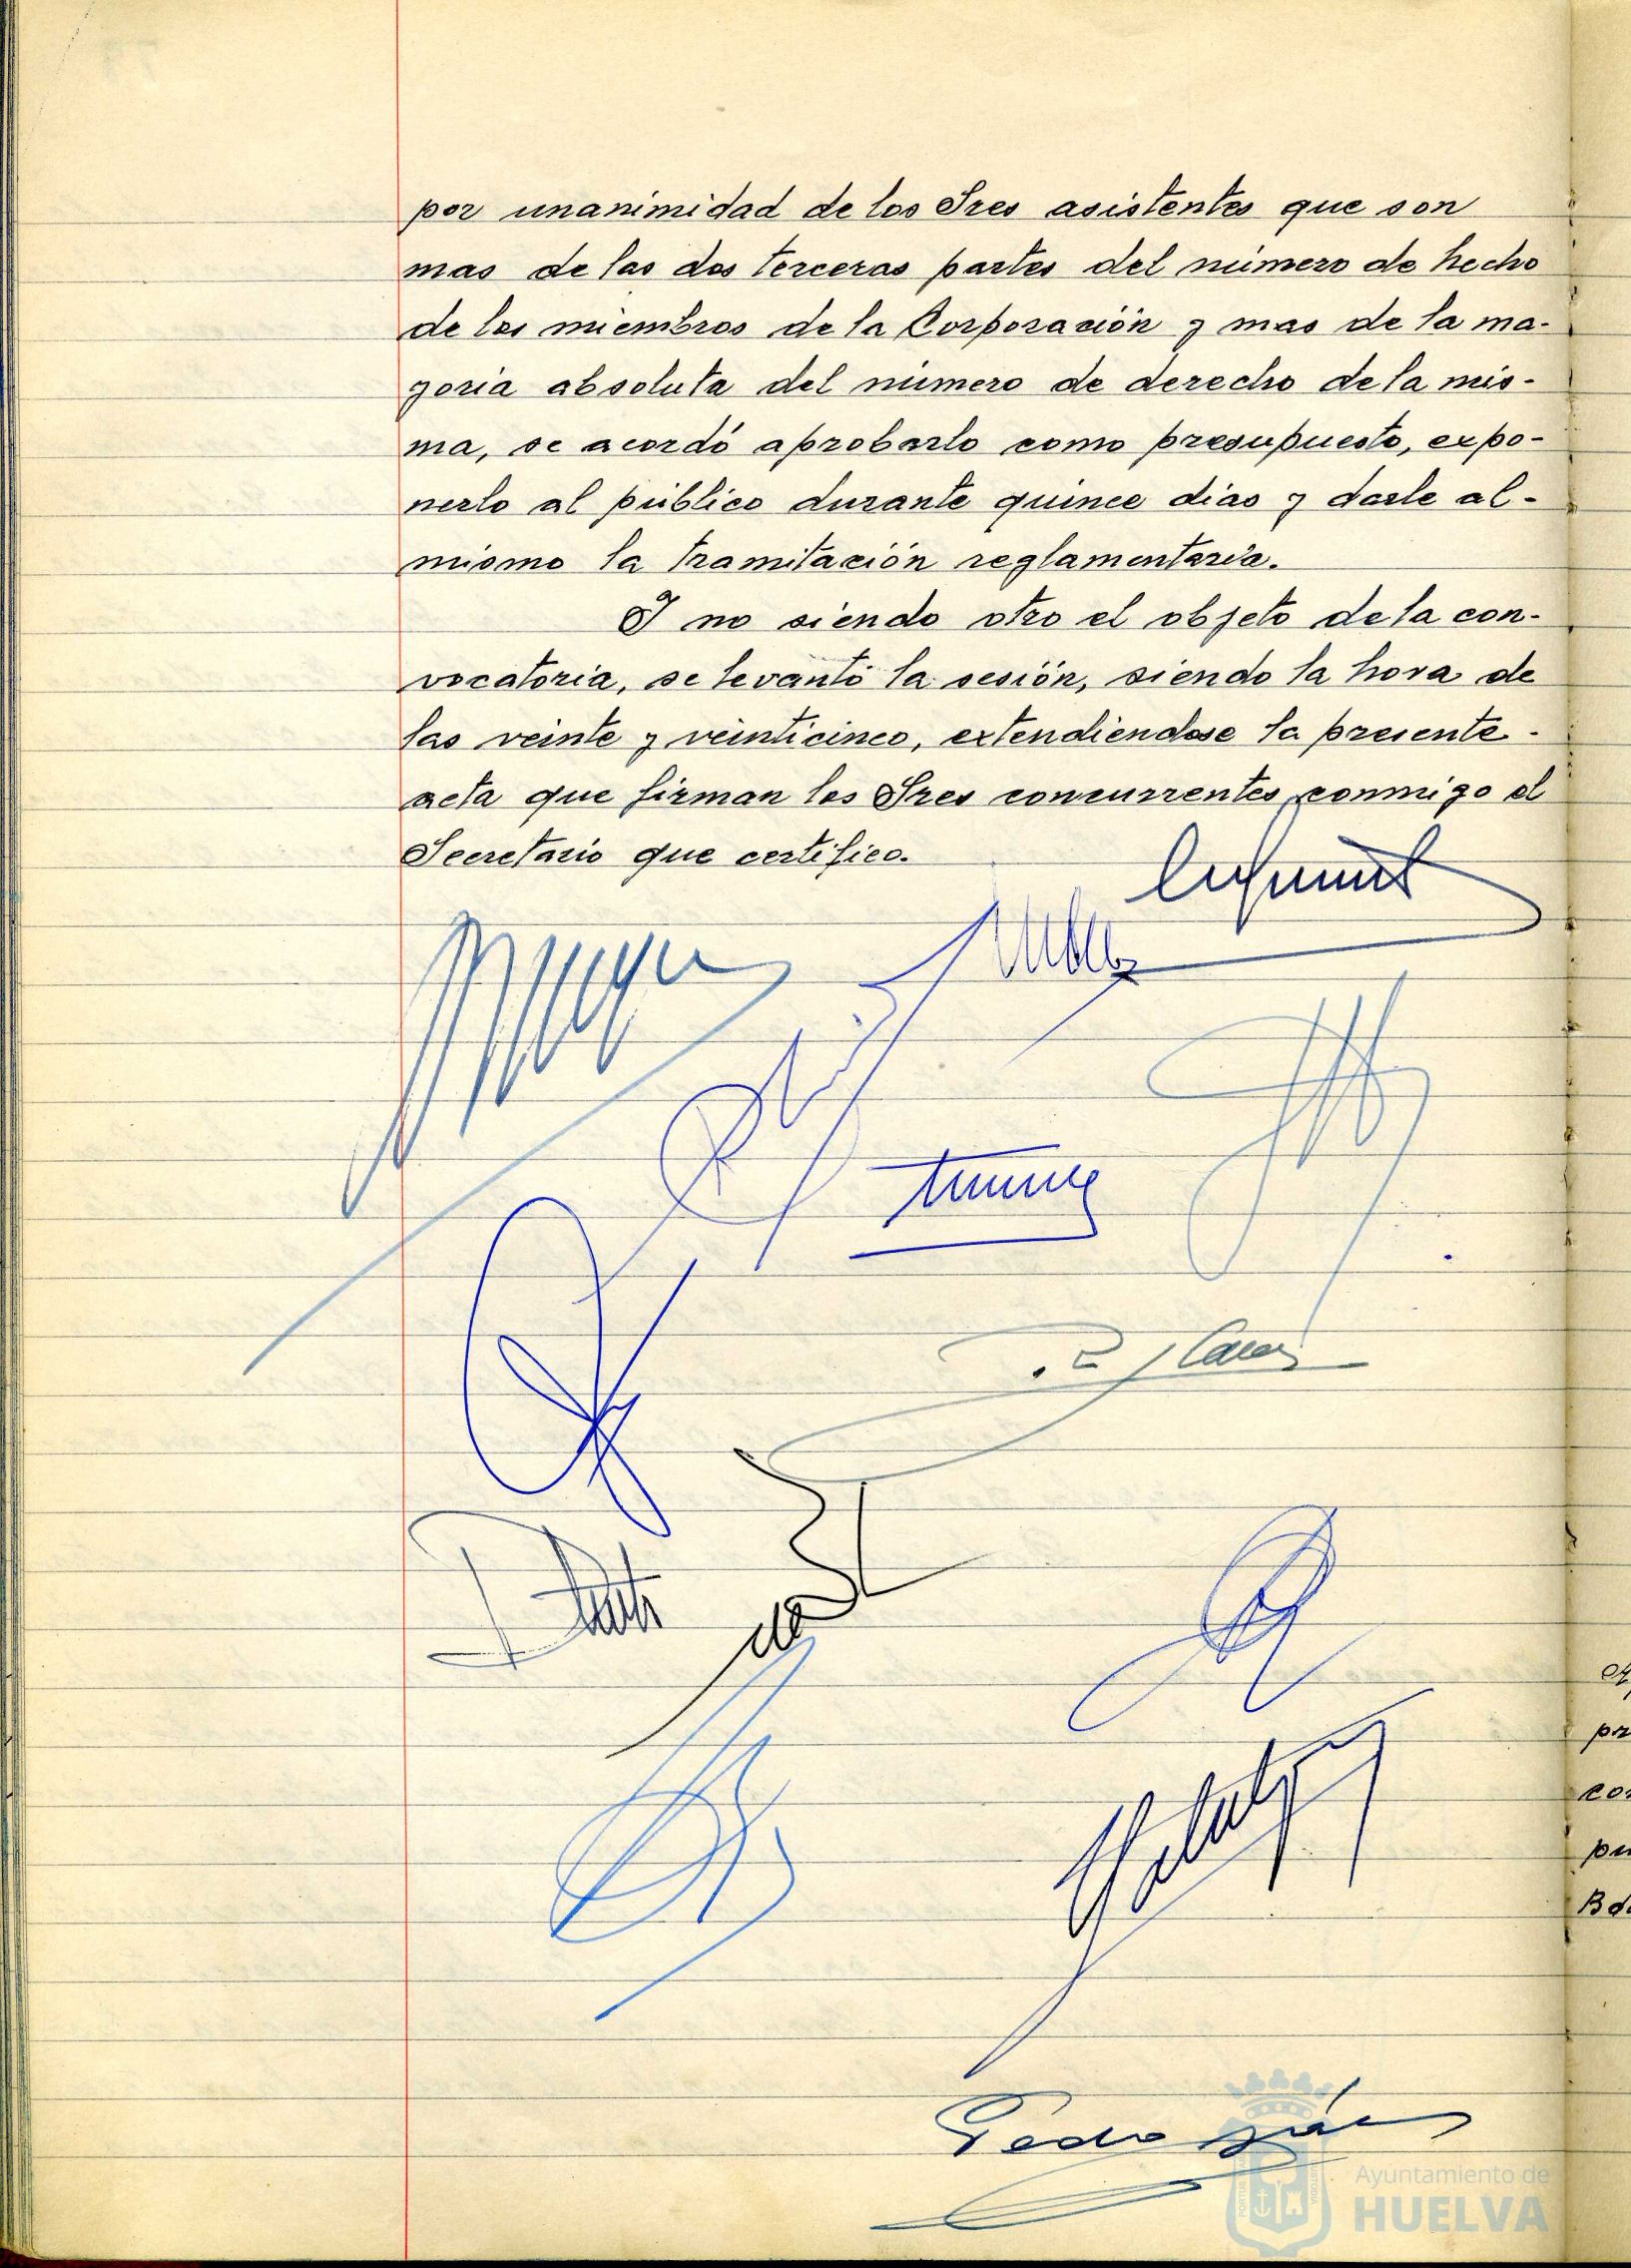 por unanimidad de los Sres asistentes que son
mas de las dos terceras partes del número de hecho
de los miembros de la Corporación y mas de la ma-
yoria absoluta del número de derecho de la mis-
ma, se acordó aprobarlo como presupuesto, expo-
nerlo al público durante quince dias y darle al-
mismo la tramitación reglamentaria.
Y no siendo otro el objeto de la con-
vocatoria, se levantó la sesión, siendo la hora de
las veinte y veinticinco, extendiéndose la presente-
acta que firman los Sres concurrentes conmigo el
Secretario que certifico.
pr
co
pu
Pedro
Ayuntamiento de
HUELVA